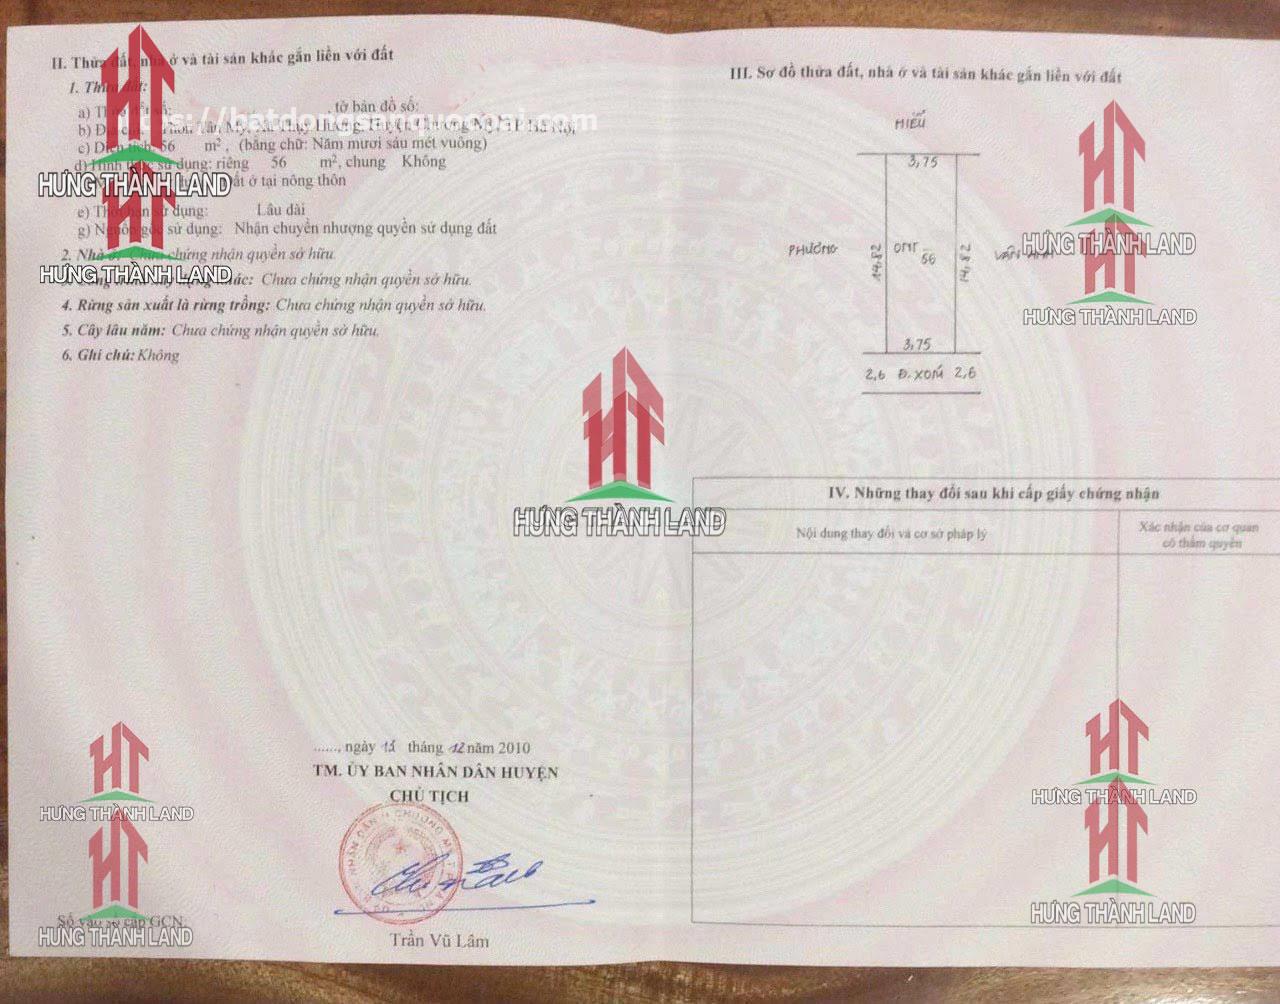 II. Thửa đất, nhà ở và tài sản khác gắn liền với đất
1. Thửa đất:
a) Thửa đất số: , tờ bản đồ số:
https://batdongsanquocoai.com
b) Địa chỉ: Thôn Tân Mỹ, Xã Thụy Hương, Huyện Chương Mỹ, TP. Hà Nội,
c) Diện tích: 56 m², (bằng chữ: Năm mươi sáu mét vuông)
d) Hình thức sử dụng: riêng 56 m², chung Không
đất ở tại nông thôn
HƯNG THÀNH LAND
e) Thời hạn sử dụng: Lâu dài
g) Nguồn gốc sử dụng: Nhận chuyển nhượng quyền sử dụng đất
2. Nhà ở: Chưa chứng nhận quyền sở hữu.
HƯNG THÀNH LAND
khác: Chưa chứng nhận quyền sở hữu.
4. Rừng sản xuất là rừng trồng: Chưa chứng nhận quyền sở hữu.
5. Cây lâu năm: Chưa chứng nhận quyền sở hữu.
6. Ghi chú: Không
HT
HƯNG THÀNH LAND
......, ngày 15 tháng 12 năm 2010
TM. ỦY BAN NHÂN DÂN HUYỆN
CHỦ TỊCH
Trần Vũ Lâm
HT
HƯNG THÀNH LAND
HT
Số vào sổ cấp GCN:
HƯNG THÀNH LAND
III. Sơ đồ thửa đất, nhà ở và tài sản khác gắn liền với đất
HIẾU
3,75
PHƯƠNG
14,82
ONT
56
14,82
HT
HƯNG THÀNH LAND
HT
HƯNG THÀNH LAND
3,75
2,6 Đ. XÓM 2,6
IV. Những thay đổi sau khi cấp giấy chứng nhận
Nội dung thay đổi và cơ sở pháp lý
Xác nhận của cơ quan
có thẩm quyền
HT
HƯNG THÀNH LAND
HT
HƯNG THÀNH LAND